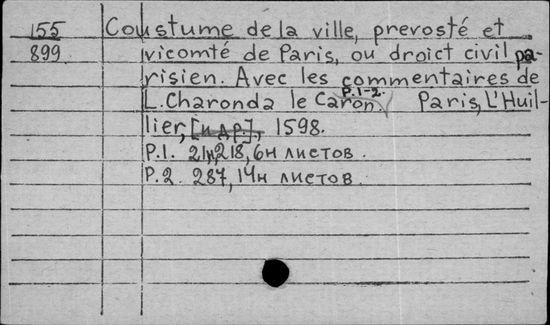 155 Coustume de la ville, prevosté et
899 vicomté de Paris, ou droict civil pa-
risien. Avec les commentaires de
L. Charonda le Caron. P.1-2. Paris, L'Huil-
lier, [и др.], 1598.
P.1. 21н, 218, 6н листов.
P.2. 287, 14н листов.